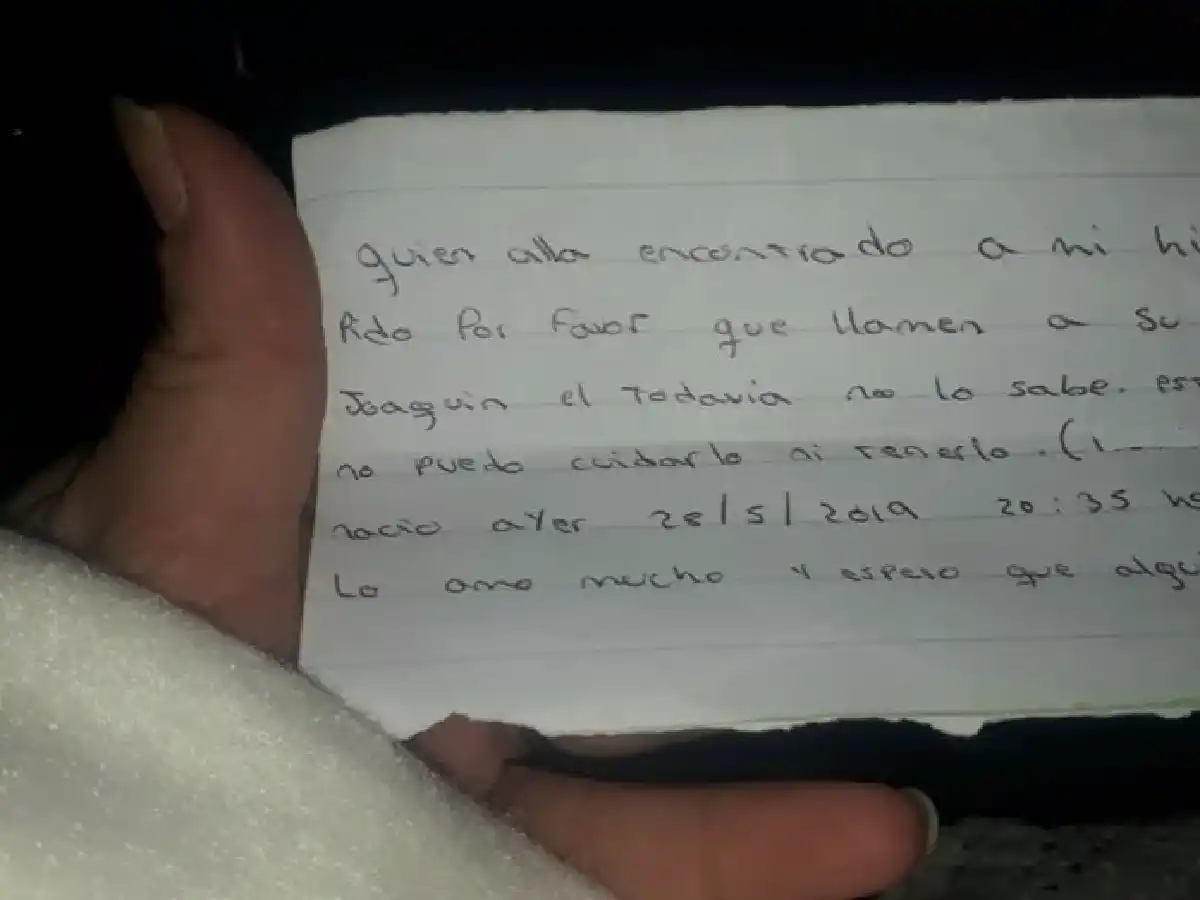 quien alla encontrado a mi hi
Pido Por Favor que llamen a su
Joaquin el Todavia no lo sabe. est
no puedo cuidarlo ni tenerlo. (1
nacio ayer 28/5/2019 20:35 hs
Lo amo mucho y espero que algu